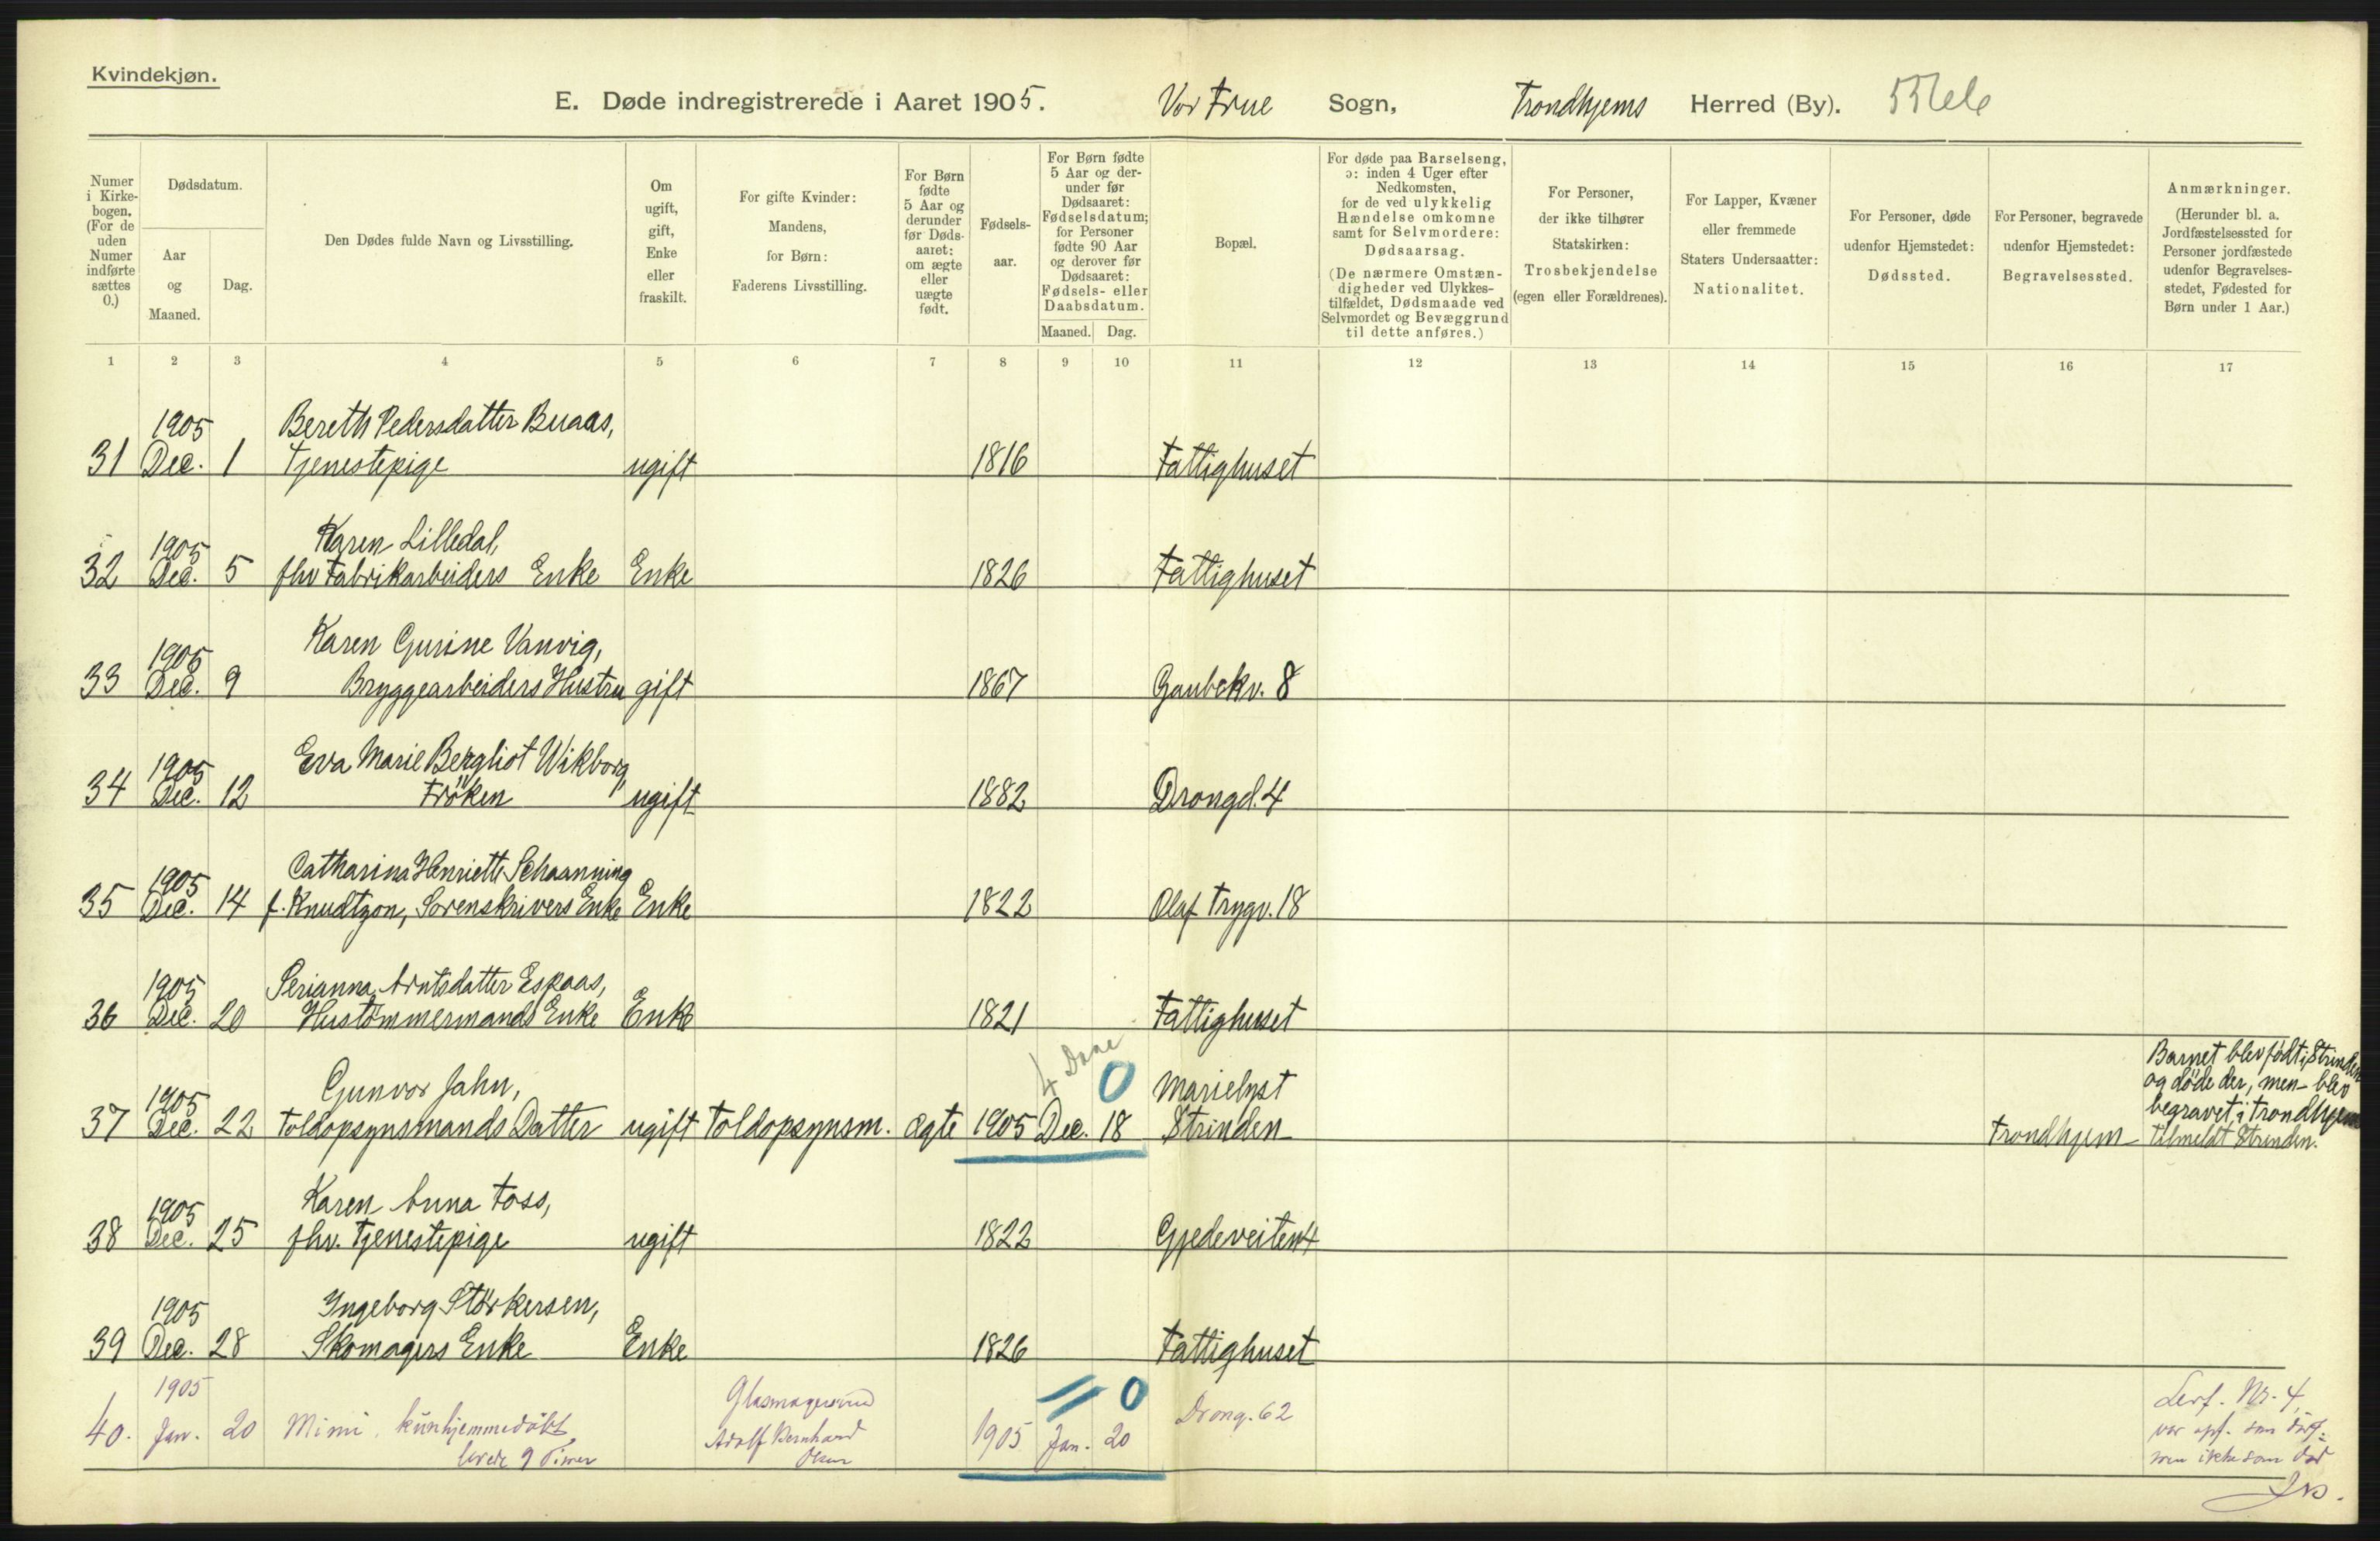 Kvindekjøn.
E. Døde indregistrerede i Aaret 1905. Vor Frue Sogn, Trondhjems Herred (By).
Numer i Kirkebogen. (For de uden Numer indførte sættes 0.)
Dødsdatum.
Aar og Maaned.
Dag.
Den Dødes fulde Navn og Livsstilling.
Om ugift, gift, Enke eller fraskilt.
For gifte Kvinder: Mandens, for Børn: Faderens Livsstilling.
For Børn fødte 5 Aar og derunder før Dødsaaret: om ægte eller uægte født.
Fødselsaar.
For Børn fødte 5 Aar og derunder før Dødsaaret: Fødselsdatum; for Personer fødte 90 Aar og derover før Dødsaaret: Fødsels- eller Daabsdatum.
Maaned. Dag.
Bopæl.
For døde paa Barselseng, ɔ: inden 4 Uger efter Nedkomsten, for de ved ulykkelig Hændelse omkomne samt for Selvmordere: Dødsaarsag. (De nærmere Omstændigheder ved Ulykkestilfældet, Dødsmaade ved Selvmordet og Bevæggrund til dette anføres.)
For Personer, der ikke tilhører Statskirken: Trosbekjendelse (egen eller Forældrenes).
For Lapper, Kvæner eller fremmede Staters Undersaatter: Nationalitet.
For Personer, døde udenfor Hjemstedet: Dødssted.
For Personer, begravede udenfor Hjemstedet: Begravelsessted.
Anmærkninger. (Herunder bl. a. Jordfæstelsessted for Personer jordfæstede udenfor Begravelsesstedet, Fødested for Børn under 1 Aar.)
1 2 3 4 5 6 7 8 9 10 11 12 13 14 15 16 17
1905 Bereth Pedersdatter Buaas,
31 Dec. 1 Tjenestepige ugift 1816 Fattighuset
1905 Karen Lilledal,
32 Dec. 5 fhv Fabrikarbeiders Enke Enke 1826 Fattighuset
1905 Karen Gurine Vanvig,
33 Dec. 9 Bryggearbeiders Hustru gift 1867 Gaubekv. 8
1905 Eva Marie Bergliot Wikborg,
34 Dec. 12 Fröken ugift 1882 Drongd. 4
1905 Catharina Henriette Schaanning
35 Dec. 14 f. Knudtzon, Sorenskrivers Enke Enke 1822 Olaf Trygv. 18
1905 Serianna Arntsdatter Espaas,
36 Dec. 20 Hustömmermands Enke Enke 1821 Fattighuset
4 Dage 0
1905 Gunvor Jahn, Marielyst
37 Dec. 22 Toldopsynsmands Datter ugift Toldopsynsm. ægte 1905 Dec. 18 Strinden Trondhjem
Barnet blev födt i Strinden
og döde der, men blev
begravet i Trondhjem
tilmeldt Strinden.
1905 Karen Anna Foss,
38 Dec. 25 fhv. Tjenestepige ugift 1822 Gjedeveiten 4
1905 Ingeborg Störkersen,
39 Dec. 28 Skomagers Enke Enke 1826 Fattighuset
0
1905 Glasmagersvend
40. Jan. 20 Mimi, kun hjemmedöbt, Adolf Bernhard 1905 Jan. 20 Drong. 62
levede 9 Timer Olsen
Nr. 4,
var opf. som
men ikke som död